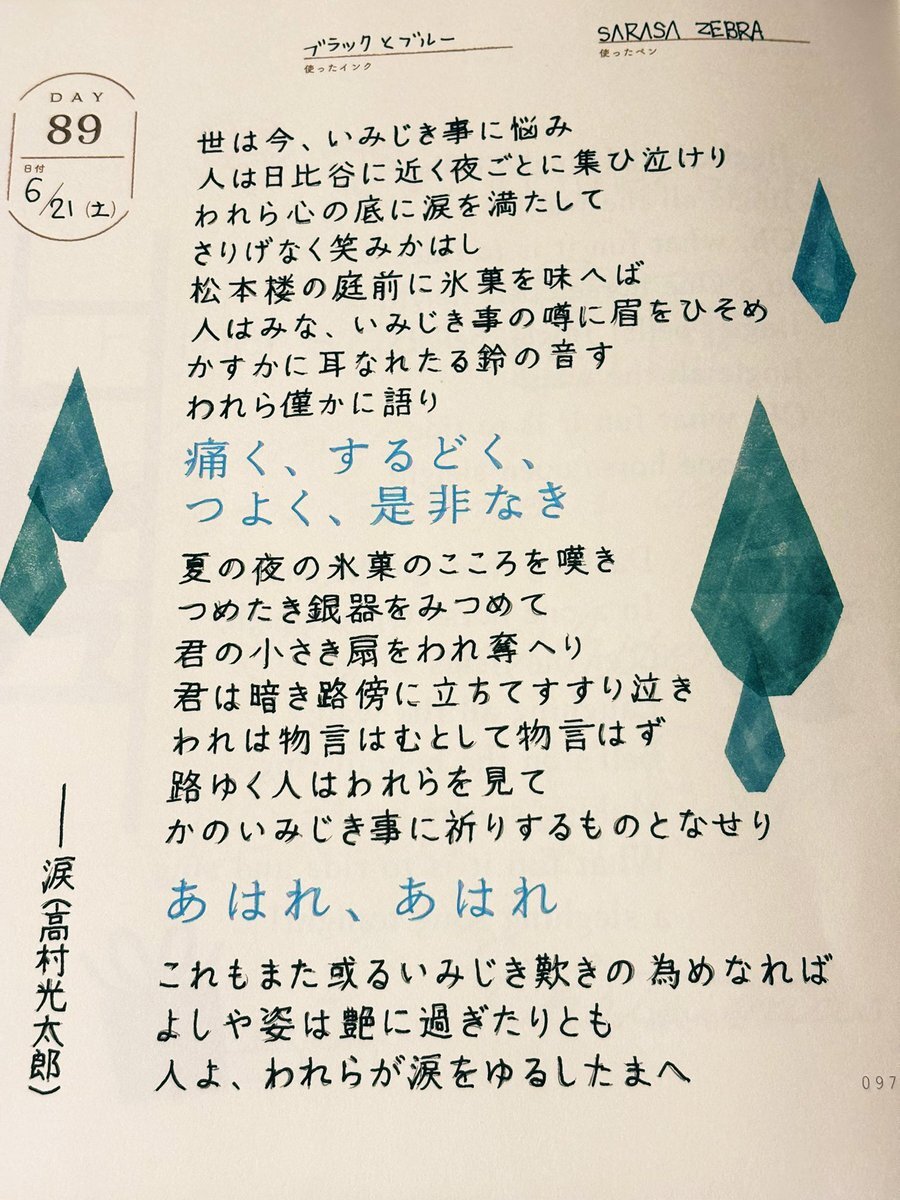 ブラックとブルー
使ったインク
SARASA ZEBRA
使ったペン
DAY
89
日付
6/21(土)
世は今、いみじき事に悩み
人は日比谷に近く夜ごとに集ひ泣けり
われら心の底に涙を満たして
さりげなく笑みかはし
松本楼の庭前に氷菓を味へば
人はみな、いみじき事の噂に眉をひそめ
かすかに耳なれたる鈴の音す
われら僅かに語り
痛く、するどく、
つよく、是非なき
夏の夜の氷菓のこころを嘆き
つめたき銀器をみつめて
君の小さき扇をわれ奪へり
君は暗き路傍に立ちてすすり泣き
われは物言はむとして物言はず
路ゆく人はわれらを見て
かのいみじき事に祈りするものとなせり
あはれ、あはれ
これもまた或るいみじき歎きの為めなれば
よしや姿は艶に過ぎたりとも
人よ、われらが涙をゆるしたまへ
──涙(高村光太郎)
097